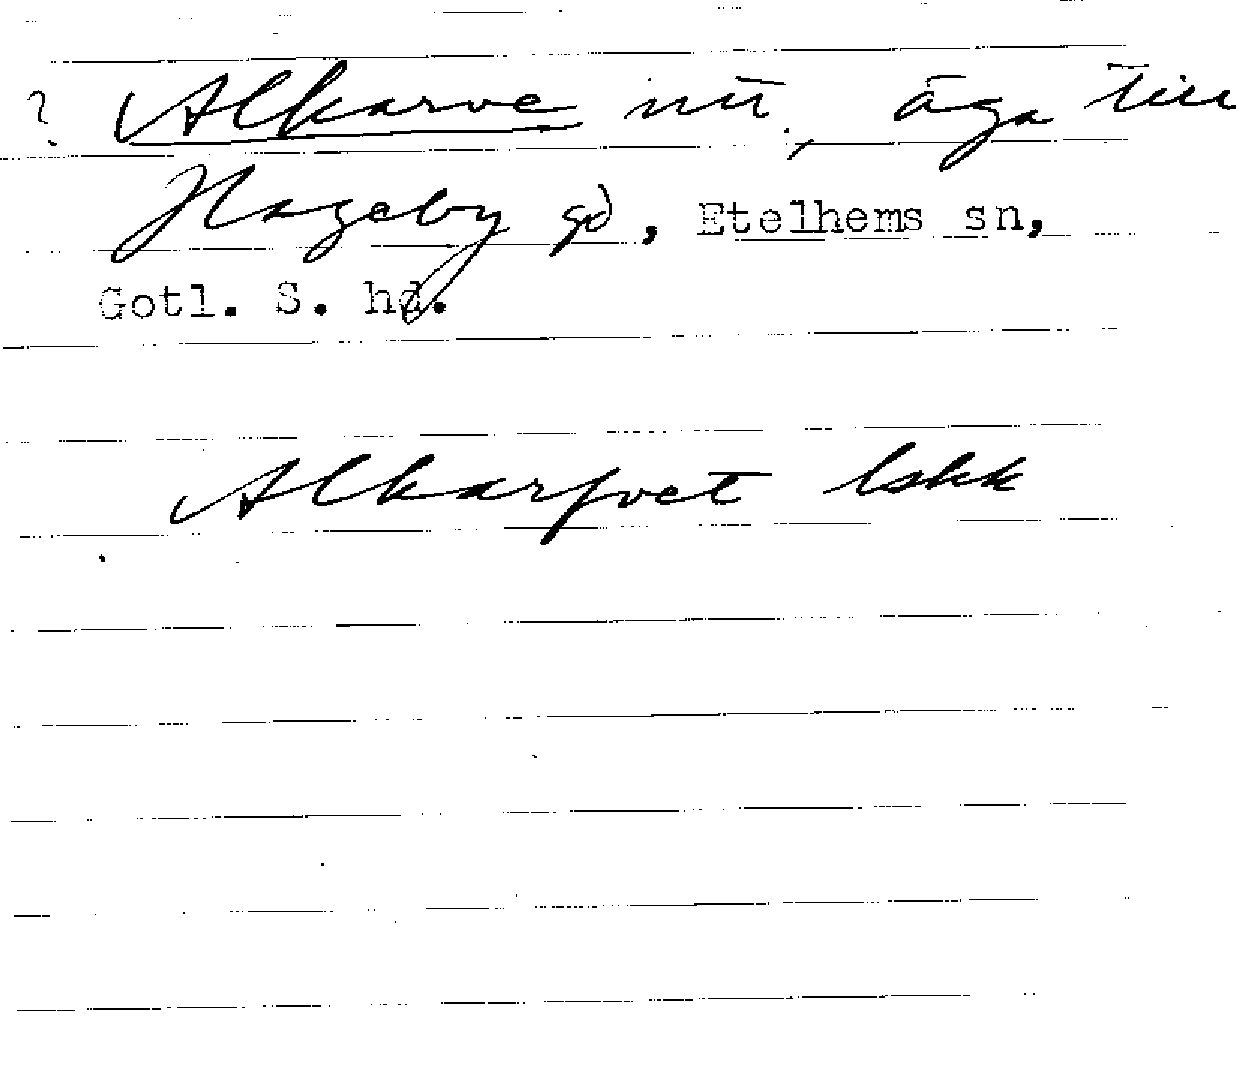 ? Alkarve nu, äga till
Hageby gd, Etelhems sn,
Gotl. S. hd.
Alkarfvet lskk